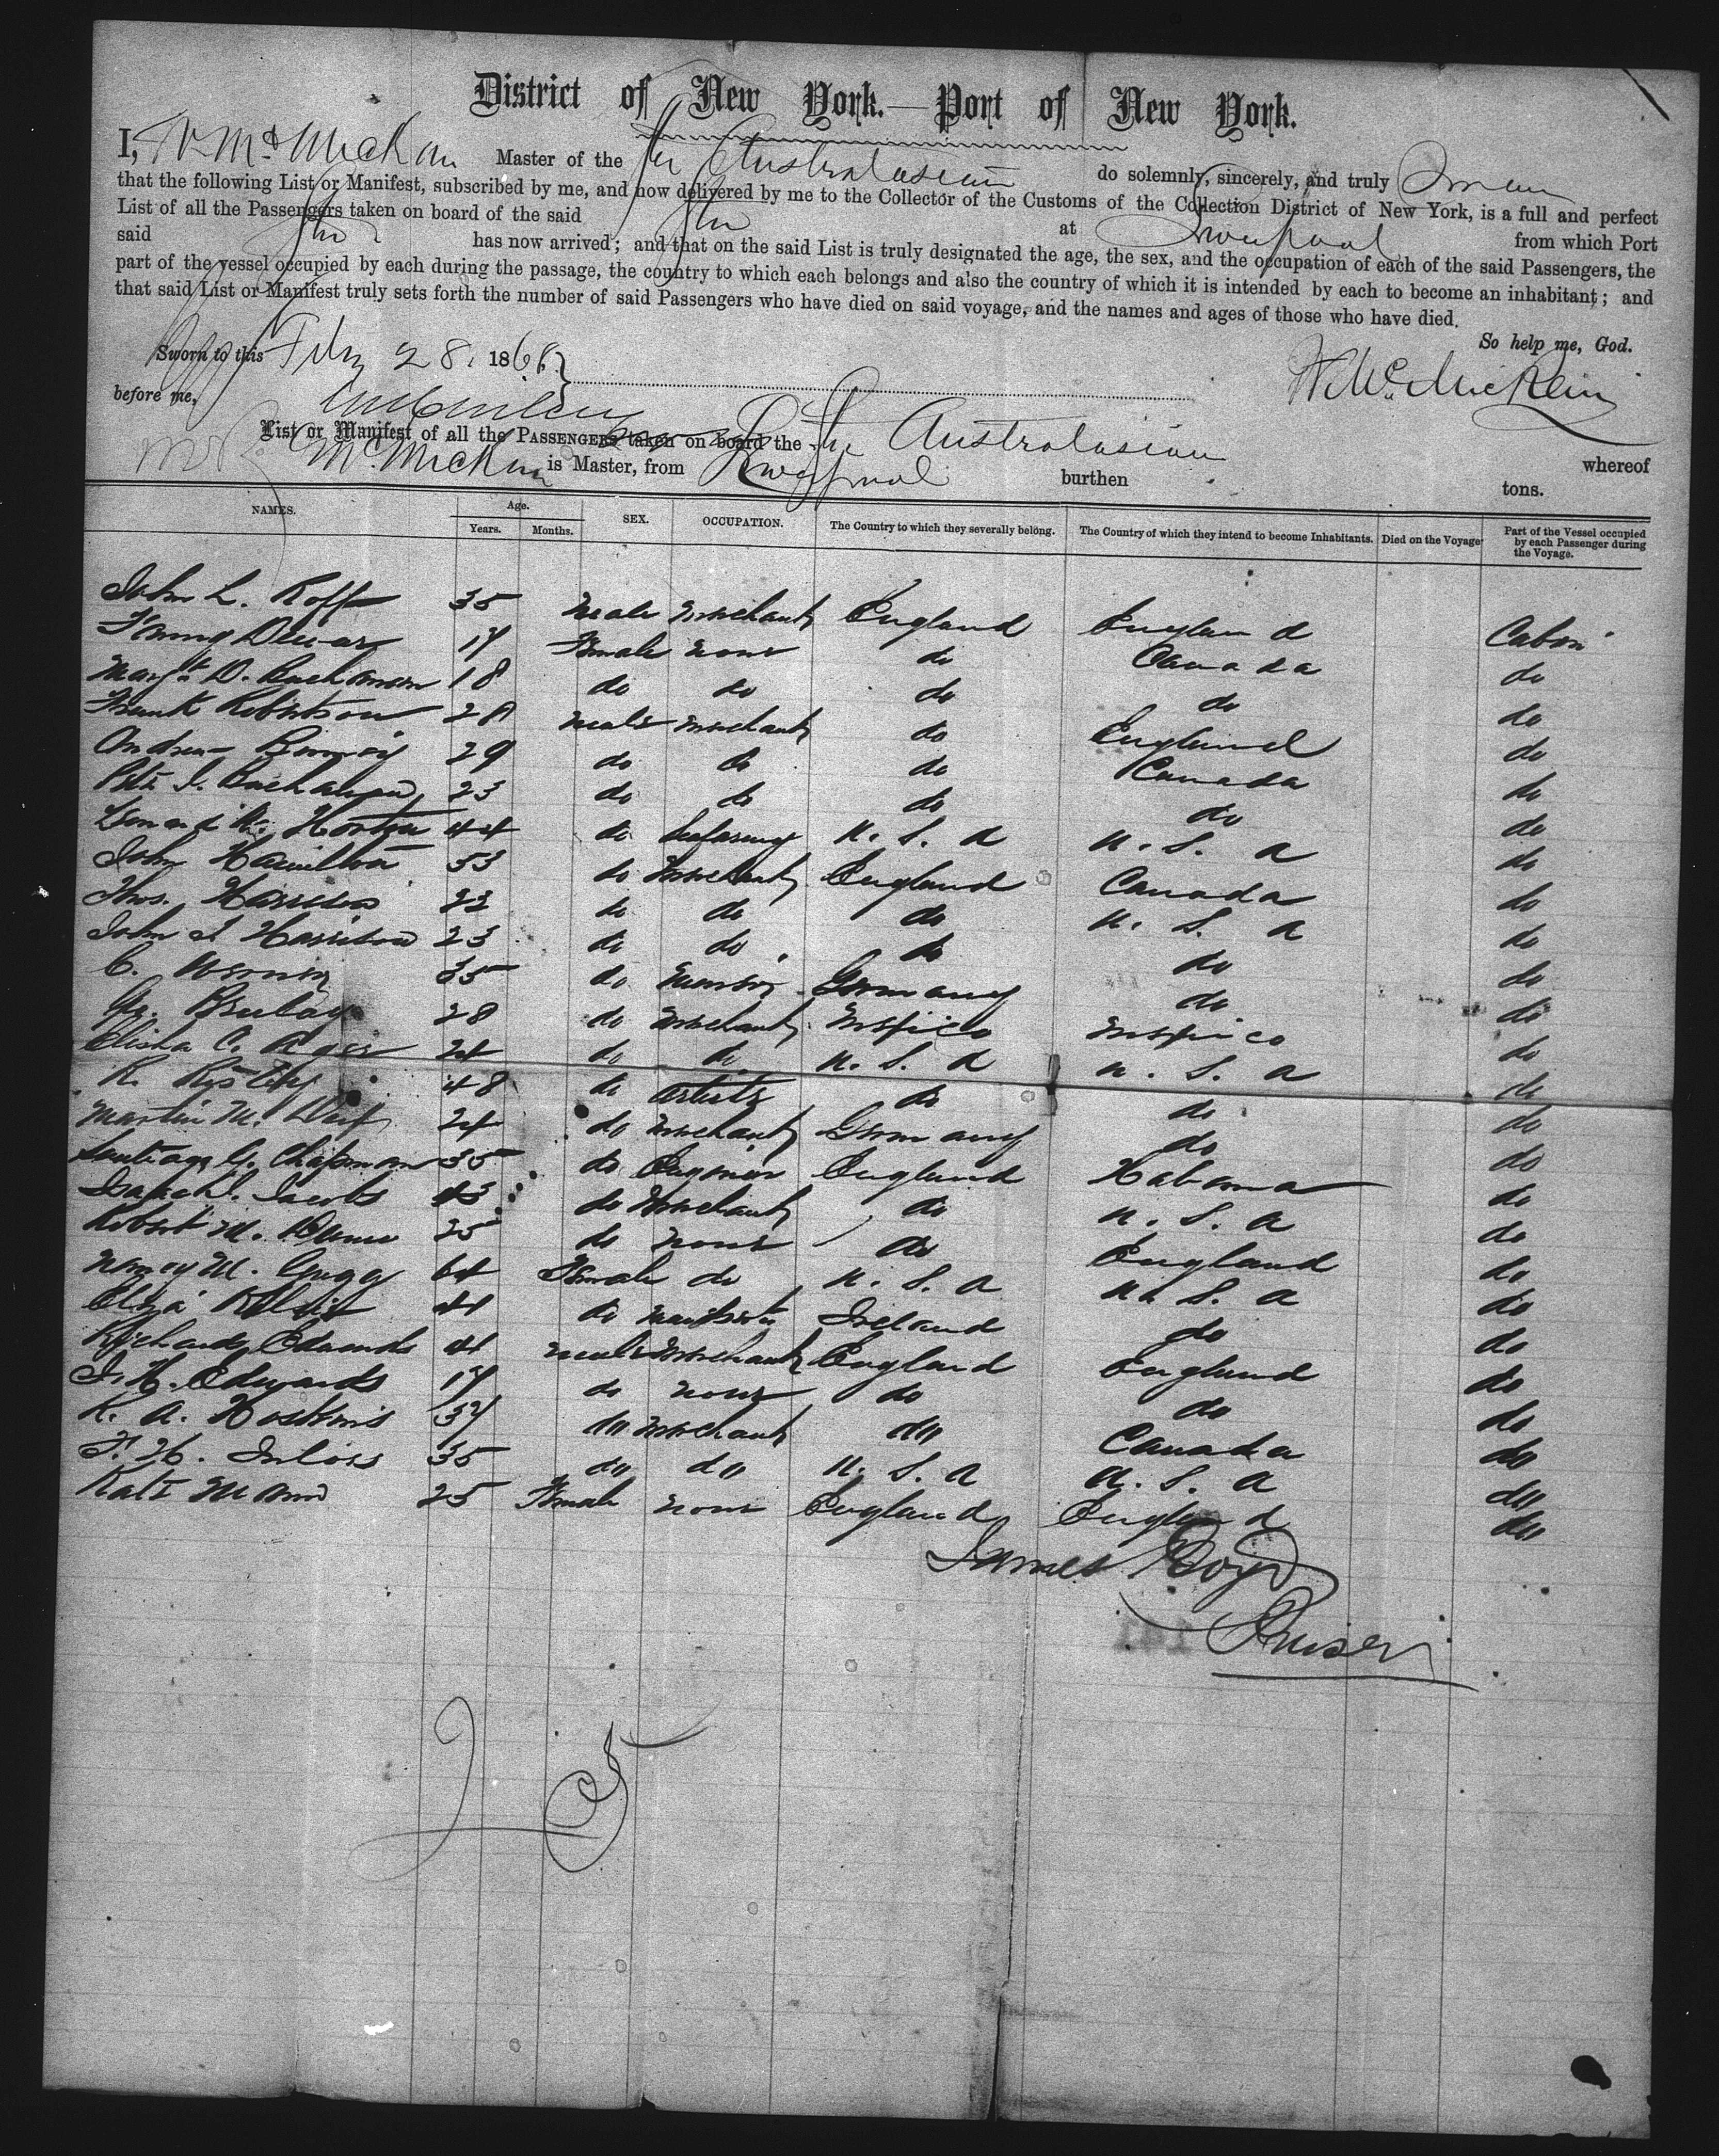 District of New York.—Port of New York.
I, W McMickan Master of the Str Australasian do solemnly, sincerely, and truly Swear
that the following List or Manifest, subscribed by me, and now delivered by me to the Collector of the Customs of the Collection District of New York, is a full and perfect
List of all the Passengers taken on board of the said Str at Liverpool from which Port
said Str has now arrived; and that on the said List is truly designated the age, the sex, and the occupation of each of the said Passengers, the
part of the vessel occupied by each during the passage, the country to which each belongs and also the country of which it is intended by each to become an inhabitant; and
that said List or Manifest truly sets forth the number of said Passengers who have died on said voyage, and the names and ages of those who have died.
So help me, God.
Sworn to this Feby 28. 1868.
W. McMickan
before me,
List or Manifest of all the PASSENGERS taken on board the Str Australasian whereof
McMickan is Master, from Liverpool burthen tons.
NAMES. Age. Years. Months. SEX. OCCUPATION. The Country to which they severally belong. The Country of which they intend to become Inhabitants. Died on the Voyage Part of the Vessel occupied by each Passenger during the Voyage.
John L. Roff 35 Male Merchant England England Cabin
Fanny Dewar 17 Female none do Canada do
Margt D. Buchanan 18 do do do do do
Frank Robertson 28 Male Merchant do England do
Andrew 29 do do do Canada do
Pete J. Buchanan 23 do do do do do
44 do U.S.A U.S.A do
John Hamilton 53 do Merchant England Canada do
Thos. Harrison 22 do do do U.S.A do
John I Harrison 23 do do do do do
C. 35 do Germany do do
28 do Merchant Mexico Mexico do
Elisha C. 24 do do U.S.A U.S.A do
R. 48 do artist do do do
Martin M. 24 do Merchant Germany do do
Santiago G. Chapman 35 do Engineer England Habana do
Isaac L. Jacobs 43 do Merchant do U.S.A do
Robert M. 25 do none do England do
Nancy M. Gregg 64 Female do U.S.A U.S.A do
Eliza 44 do Ireland do do
Richard Edwards 41 Male Merchant England England do
J. H. Edwards 17 do none do do do
R. A. Hoskins 37 do Merchant do Canada do
F. H. 35 do do U.S.A U.S.A do
Kate Mann 25 Female none England England do
James Boyd
Purser
25